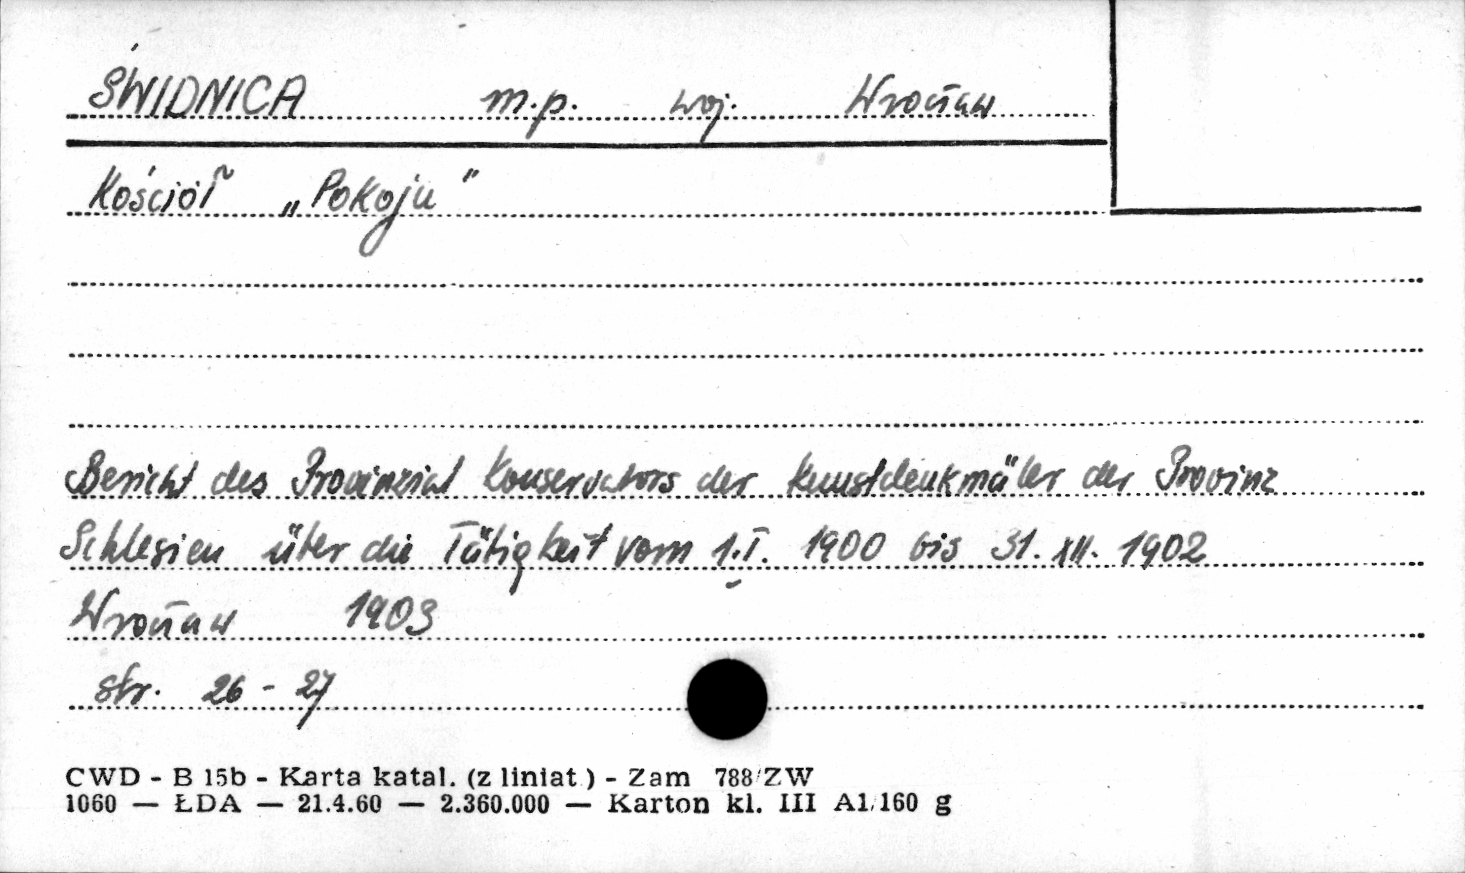 ŚWIDNICA m.p. woj. Wrocław
Kościół „Pokoju"
Bericht des Provinzial Konservators der Kunstdenkmäler der Provinz
Schlesien über die Tätigkeit vom 1.I. 1900 bis 31. XII. 1902
Wrocław 1903
str. 26 - 27
CWD - B 15b - Karta katal. (z liniat.) - Zam 788/ZW
1060 — ŁDA — 21.4.60 — 2.360.000 — Karton kl. III A1/160 g